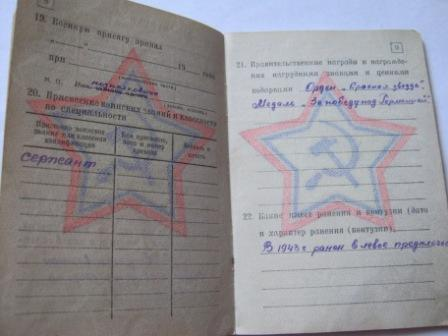 8
19. Военную присягу принял
" " 19 года
при
20. Присвоение воинских званий и классности
по специальности
Присвоено воинское
звание или классная
квалификация
сержант
9
21. Правительственные награды и награжде-
ния нагрудными знаками и ценными
подарками Орден „Красная звезда"
Медаль „За победу над Германией"
22. Какие имеет ранения и контузии (дата
и характер ранения (контузии),
В 1943 г ранен в левое